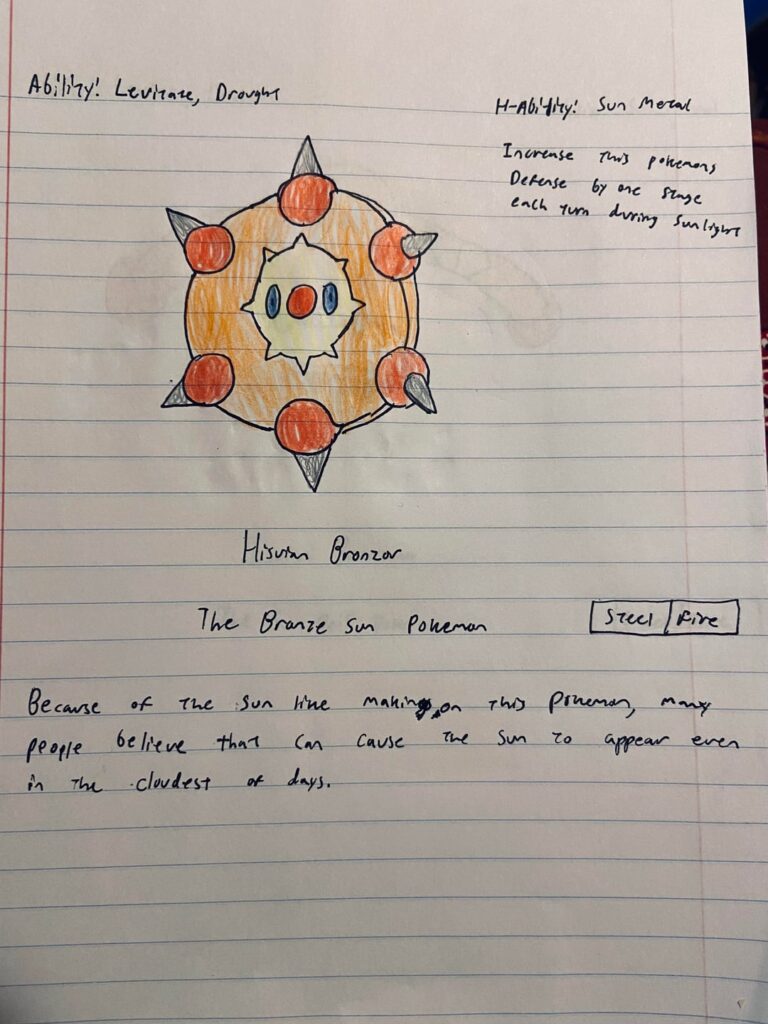 Ability: Levitate, Drought
H-Ability: Sun Metal
Increase this pokemons
Defense by one stage
each turn during sunlight
Hisuian Bronzor
The Bronze Sun Pokemon
Steel Fire
Because of the sun like making on this pokemon, many
people believe that can cause the sun to appear even
in the cloudest of days.